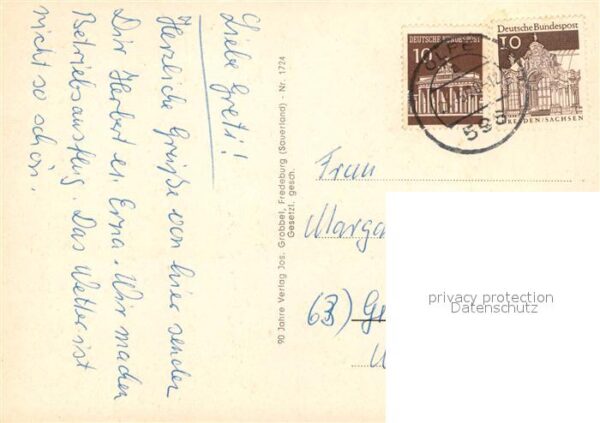 Liebe Greti!
Herzliche Grüße von hier senden
Dir Herbert u. Erna. Wir machen
Betriebsausflug. Das Wetter ist
nicht so schön.
90 Jahre Verlag Jos. Grobbel, Fredeburg (Sauerland) - Nr. 1724
Gesetzl. gesch.
DEUTSCHE BUNDESPOST
10
Deutsche Bundespost
10
DRESDEN/SACHSEN
OLPE
596
Frau
Marga
63) G
privacy protection
Datenschutz